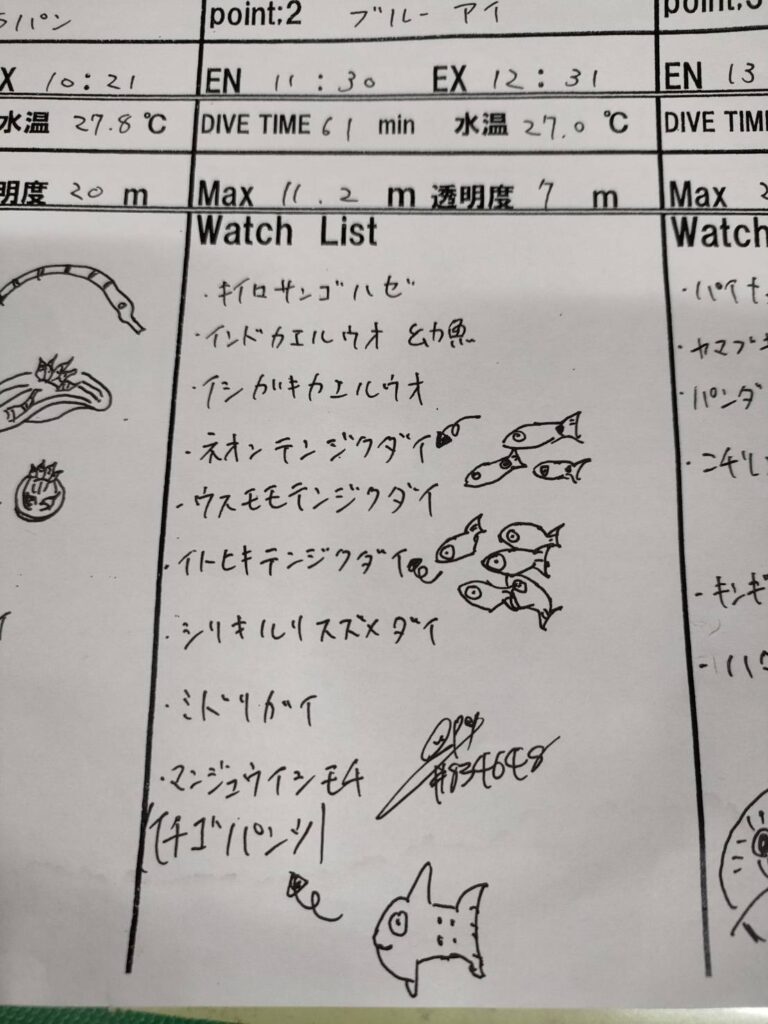 ラパン
point:2 ブルーアイ
point:3
EX 10:21
EN 11:30 EX 12:31
EN 13
水温 27.8℃
DIVE TIME 61 min 水温 27.0℃
DIVE TIM
明度 20 m
Max 11.2 m 透明度 7 m
Max 2
Watch List
・キイロサンゴハゼ
・インドカエルウオ 幼魚
・イシガキカエルウオ
・ネオンテンジクダイ
・ウスモモテンジクダイ
・イトヒキテンジクダイ
・シリキルリスズメダイ
・ミドリガイ
・マンジュウイシモチ
(イチゴパンツ)
#834648
Watch
・パイナ
・ヤマブキ
・パンダ
・ニチリン
・キンギ
・ハワ